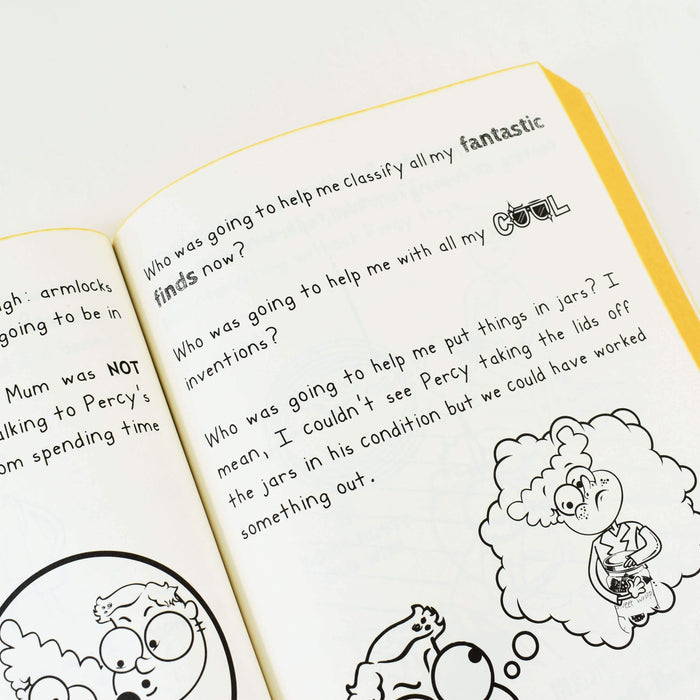 gh: armlocks
going to be in
Mum was NOT
alking to Percy's
om spending time
Who was going to help me classify all my fantastic
finds now?
Who was going to help me with all my COOL
inventions?
Who was going to help me put things in jars? I
mean, I couldn't see Percy taking the lids off
the jars in his condition but we could have worked
something out.